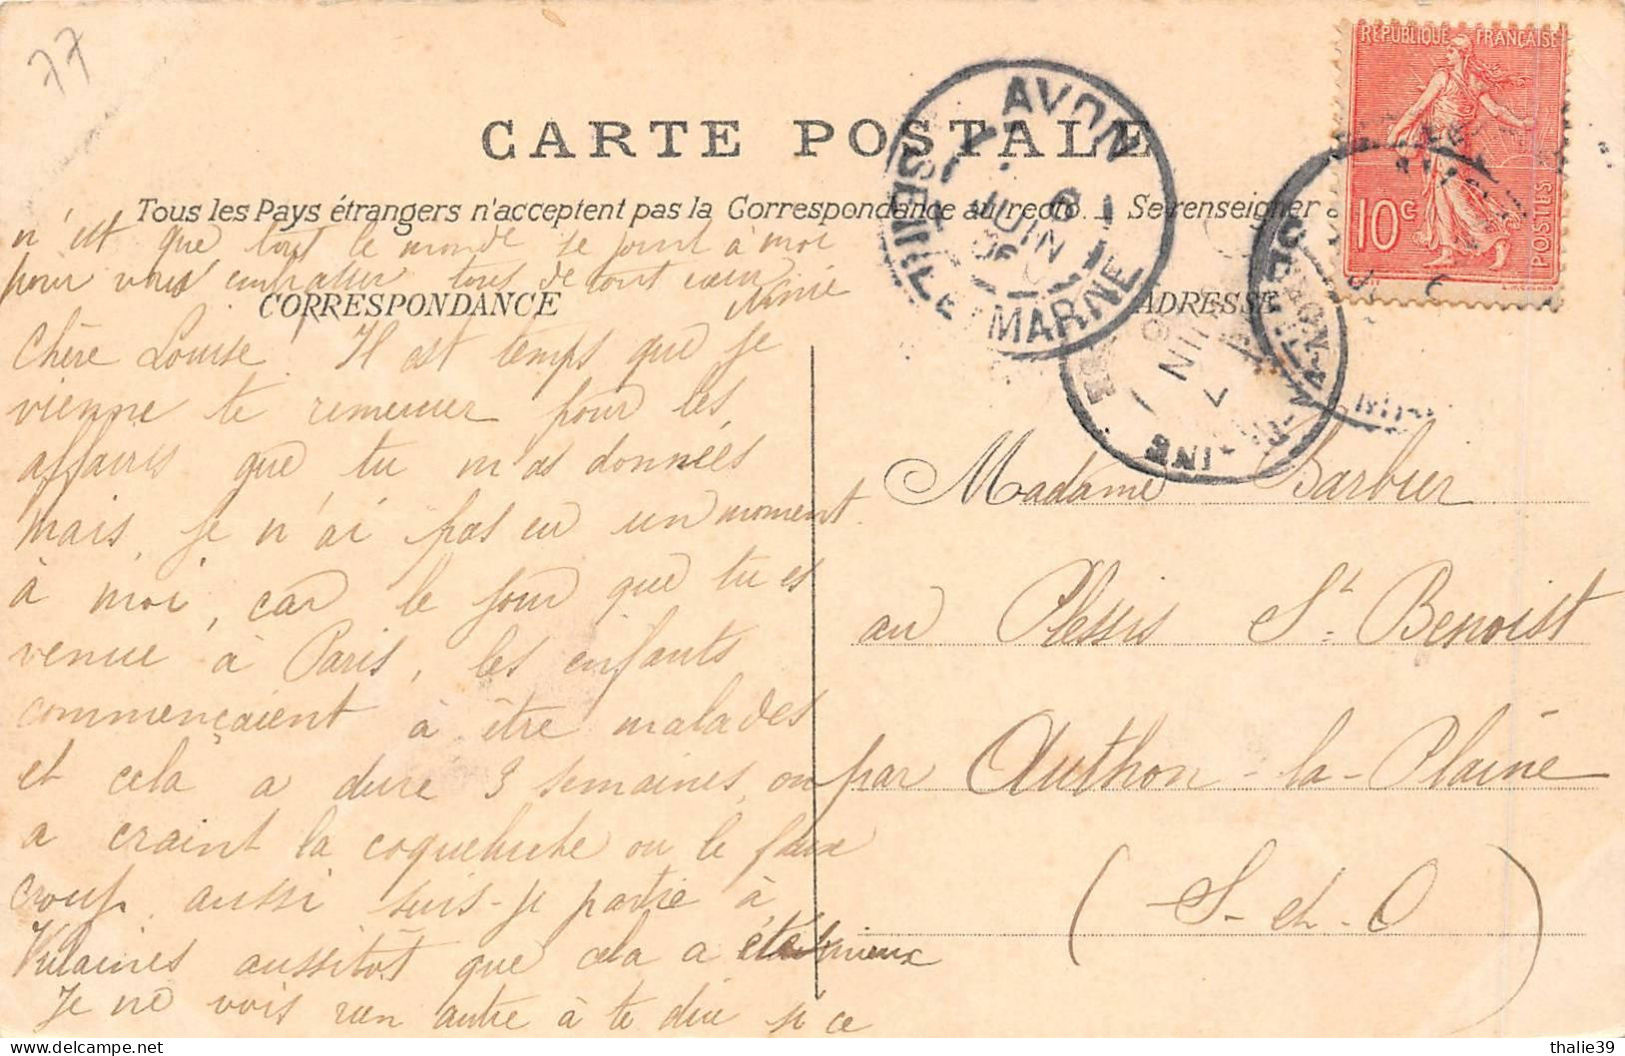 77
CARTE POSTALE
Tous les Pays étrangers n'acceptent pas la Correspondance au recto. Se renseigner
RÉPUBLIQUE FRANÇAISE
10c
POSTES
AVON
6
JUIN
06
SEINE ET MARNE
7
JUIN
CORRESPONDANCE
ADRESSE
Chère Louise. Il est temps que je
vienne te remercier pour les
affaires que tu m'as données
mais je n'ai pas eu un moment
à moi, car le jour que tu es
venue à Paris, les enfants
commençaient à être malades
et cela a dure 3 semaines, on
a craint la coqueluche ou le faux
croup, aussi suis-je partie à
Vulaines aussitôt que cela a été mieux
Je ne vois rien autre à te dire si ce
n'est que tout le monde se joint à moi
pour vous embrasser tous de tout cœur
Madame Barbier
au Plessis St Benoist
par Authon-la-Plaine
(S-et-O)
thalie39